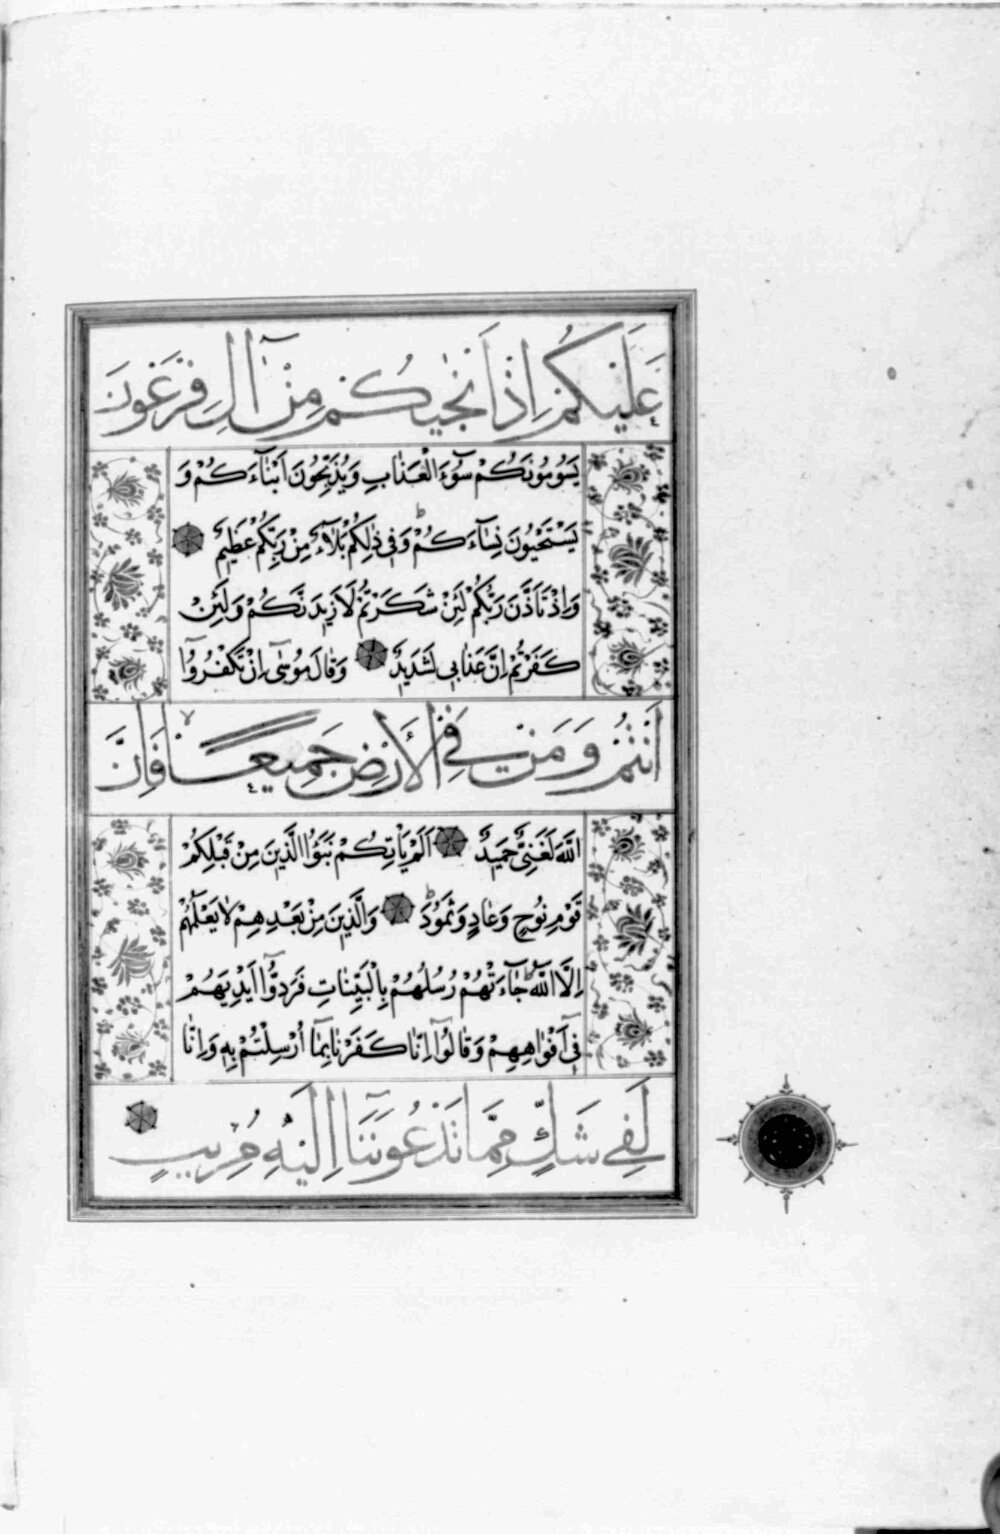 عَلَيْكُمْ اِذْ اَنْجٰيكُمْ مِنْ اٰلِ فِرْعَوْنَ
يَسُومُونَكُمْ سُوٓءَ الْعَذَابِ وَيُذَبِّحُونَ اَبْنَآءَكُمْ وَ
يَسْتَحْيُونَ نِسَآءَكُمْ وَفِي ذٰلِكُمْ بَلَآءٌ مِنْ رَبِّكُمْ عَظِيمٌ
وَاِذْ تَاَذَّنَ رَبُّكُمْ لَئِنْ شَكَرْتُمْ لَاَزِيدَنَّكُمْ وَلَئِنْ
كَفَرْتُمْ اِنَّ عَذَابِي لَشَدِيدٌ وَقَالَ مُوسٰٓى اِنْ تَكْفُرُوٓا
اَنْتُمْ وَمَنْ فِي الْاَرْضِ جَمِيعًا فَاِنَّ
اللّٰهَ لَغَنِيٌّ حَمِيدٌ اَلَمْ يَاْتِكُمْ نَبَؤُا الَّذِينَ مِنْ قَبْلِكُمْ
قَوْمِ نُوحٍ وَعَادٍ وَثَمُودَ وَالَّذِينَ مِنْ بَعْدِهِمْ لَا يَعْلَمُهُمْ
اِلَّا اللّٰهُ جَآءَتْهُمْ رُسُلُهُمْ بِالْبَيِّنَاتِ فَرَدُّوٓا اَيْدِيَهُمْ
فِيٓ اَفْوَاهِهِمْ وَقَالُوٓا اِنَّا كَفَرْنَا بِمَآ اُرْسِلْتُمْ بِهِ وَاِنَّا
لَفِي شَكٍّ مِمَّا تَدْعُونَنَآ اِلَيْهِ مُرِيبٍ